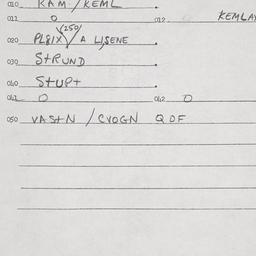 010 KAM/KEML
011 0 012 KEMLA
(250)
020 PL81X A LJSENE
030 StRUND
040 StUPt
041 0 042 0
050 VAStN / CVOGN QDF